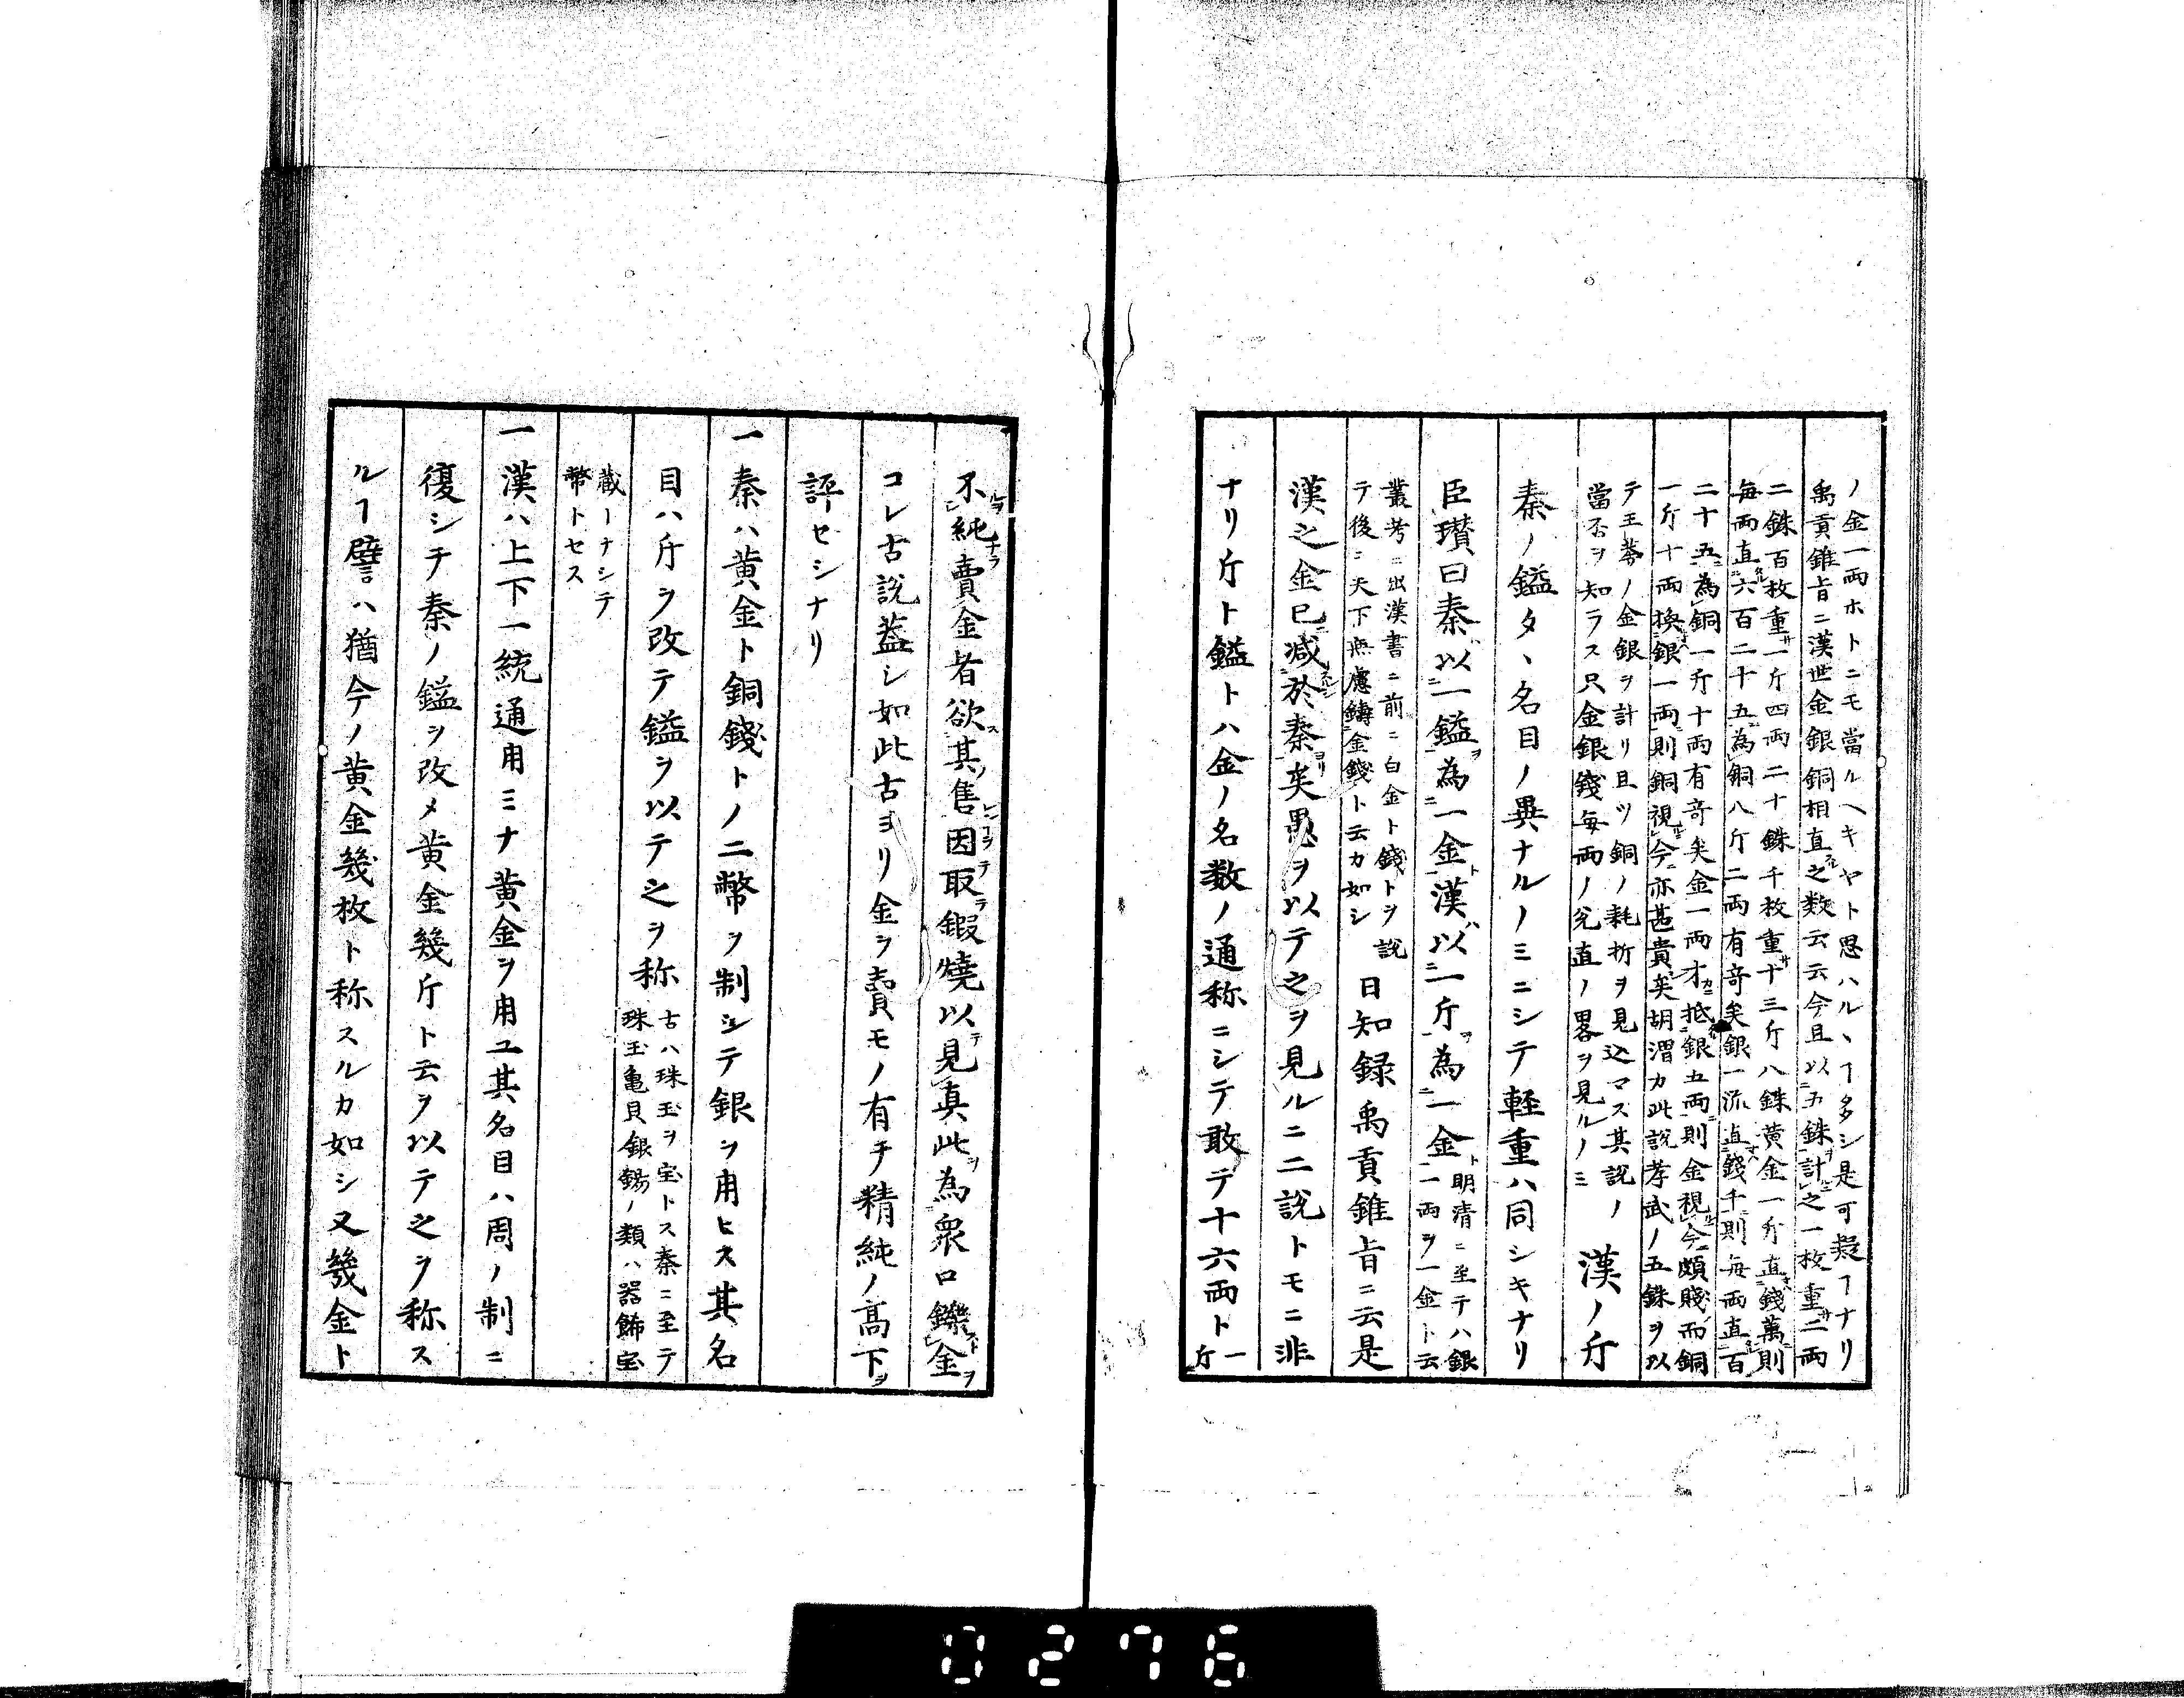 ノ金一両ホトニモ當ルヘキヤト思ハルヽヿ多シ是可疑ヿナリ
禹貢錐旨ニ漢世金銀銅相直之数云云今且以五銖計之一枚重二両
二銖百枚重一斤四両二十銖千枚重十三斤八銖黄金一斤直錢萬則
毎両直六百二十五為銅八斤二両有竒矣銀一流直錢千則毎両直百
二十五為銅一斤十両有竒矣金一両才抵銀五両則金視今頗賤而銅
一斤十両換銀一両則銅視今亦甚貴矣胡渭カ此説孝武ノ五銖ヲ以
テ王莽ノ金銀ヲ計リ且ツ銅ノ耗折ヲ見込マス其説ノ
當否ヲ知ラス只金銀錢毎両ノ兌直ノ畧ヲ見ルノミ
漢ノ斤
秦ノ鎰タヽ名目ノ異ナルノミニシテ軽重ハ同シキナリ
臣瓉曰秦以一鎰為一金漢以一斤為一金
明清ニ至テハ銀
一両ヲ一金ト云
叢考ニ出漢書ニ前ニ白金ト錢トヲ説
テ後ニ天下無慮鑄金錢ト云カ如シ
日知録禹貢錐旨ニ云是
漢之金已減於秦矣愚ヲ以テ之ヲ見ルニ二説トモニ非
ナリ斤ト鎰トハ金ノ名数ノ通称ニシテ敢テ十六両ト一斤
不純賣金者欲其售因取鍜燒以見真此為衆口鑠金
コレ古説蓋シ如此古ヨリ金ヲ賣モノ有チ精純ノ高下ヲ
評セシナリ
一秦ハ黄金ト銅錢トノ二幣ヲ制シテ銀ヲ用ヒス其名
目ハ斤ヲ改テ鎰ヲ以テ之ヲ称
古ハ珠玉ヲ宝トス秦ニ至テ
珠玉亀貝銀錫ノ類ハ器飾宝
蔵ーナシテ
幣トセス
一漢ハ上下一統通用ミナ黄金ヲ用ユ其名目ハ周ノ制ニ
復シチ秦ノ鎰ヲ改メ黄金幾斤ト云ヲ以テ之ヲ称ス
ルヿ譬ハ猶今ノ黄金幾枚ト称スルカ如シ又幾金ト
0276